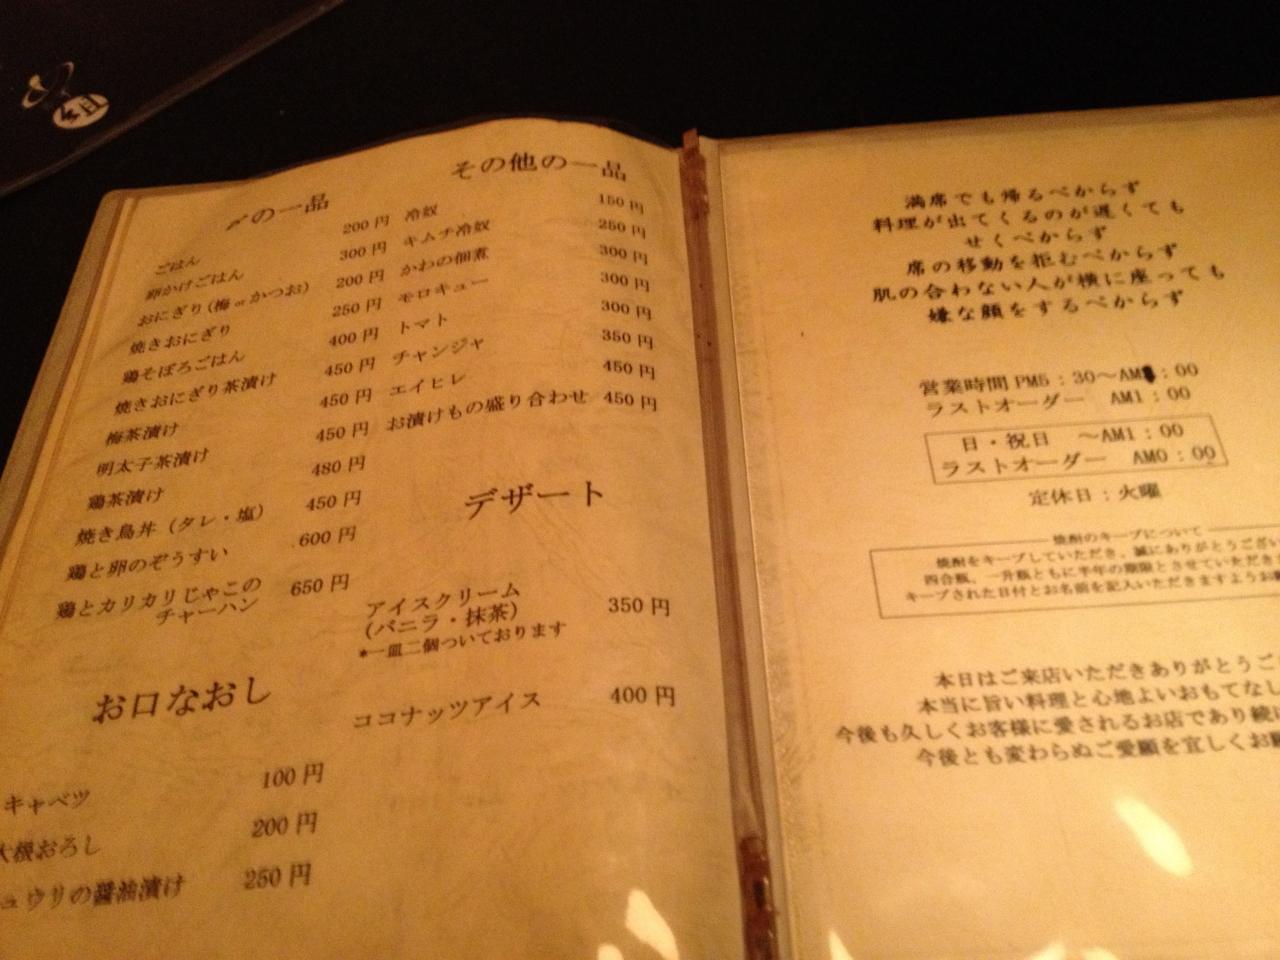 〆の一品
ごはん 200円
卵かけごはん 300円
おにぎり(梅orかつお) 200円
焼きおにぎり 250円
鶏そぼろごはん 400円
焼きおにぎり茶漬け 450円
梅茶漬け 450円
明太子茶漬け 450円
鶏茶漬け 480円
焼き鳥丼(タレ・塩) 450円
鶏と卵のぞうすい 600円
鶏とカリカリじゃこの
チャーハン 650円
お口なおし
キャベツ 100円
大根おろし 200円
ュウリの醤油漬け 250円
その他の一品
冷奴 150円
キムチ冷奴 250円
かわの佃煮 300円
モロキュー 300円
トマト 300円
チャンジャ 350円
エイヒレ 450円
お漬けもの盛り合わせ 450円
デザート
アイスクリーム
(バニラ・抹茶) 350円
*一皿二個ついております
ココナッツアイス 400円
満席でも帰るべからず
料理が出てくるのが遅くても
せくべからず
席の移動を拒むべからず
肌の合わない人が横に座っても
嫌な顔をするべからず
営業時間 PM5:30~AM :00
ラストオーダー AM1:00
日・祝日 ~AM1:00
ラストオーダー AM0:00
定休日:火曜
焼酎のキープについて
焼酎をキープしていただき、誠にありがとうござい
四合瓶、一升瓶ともに半年の期限とさせていただき
キープされた日付とお名前を記入いただきますようお
本日はご来店いただきありがとうご
本当に旨い料理と心地よいおもてなし
今後も久しくお客様に愛されるお店であり続
今後とも変わらぬご愛顧を宜しくお